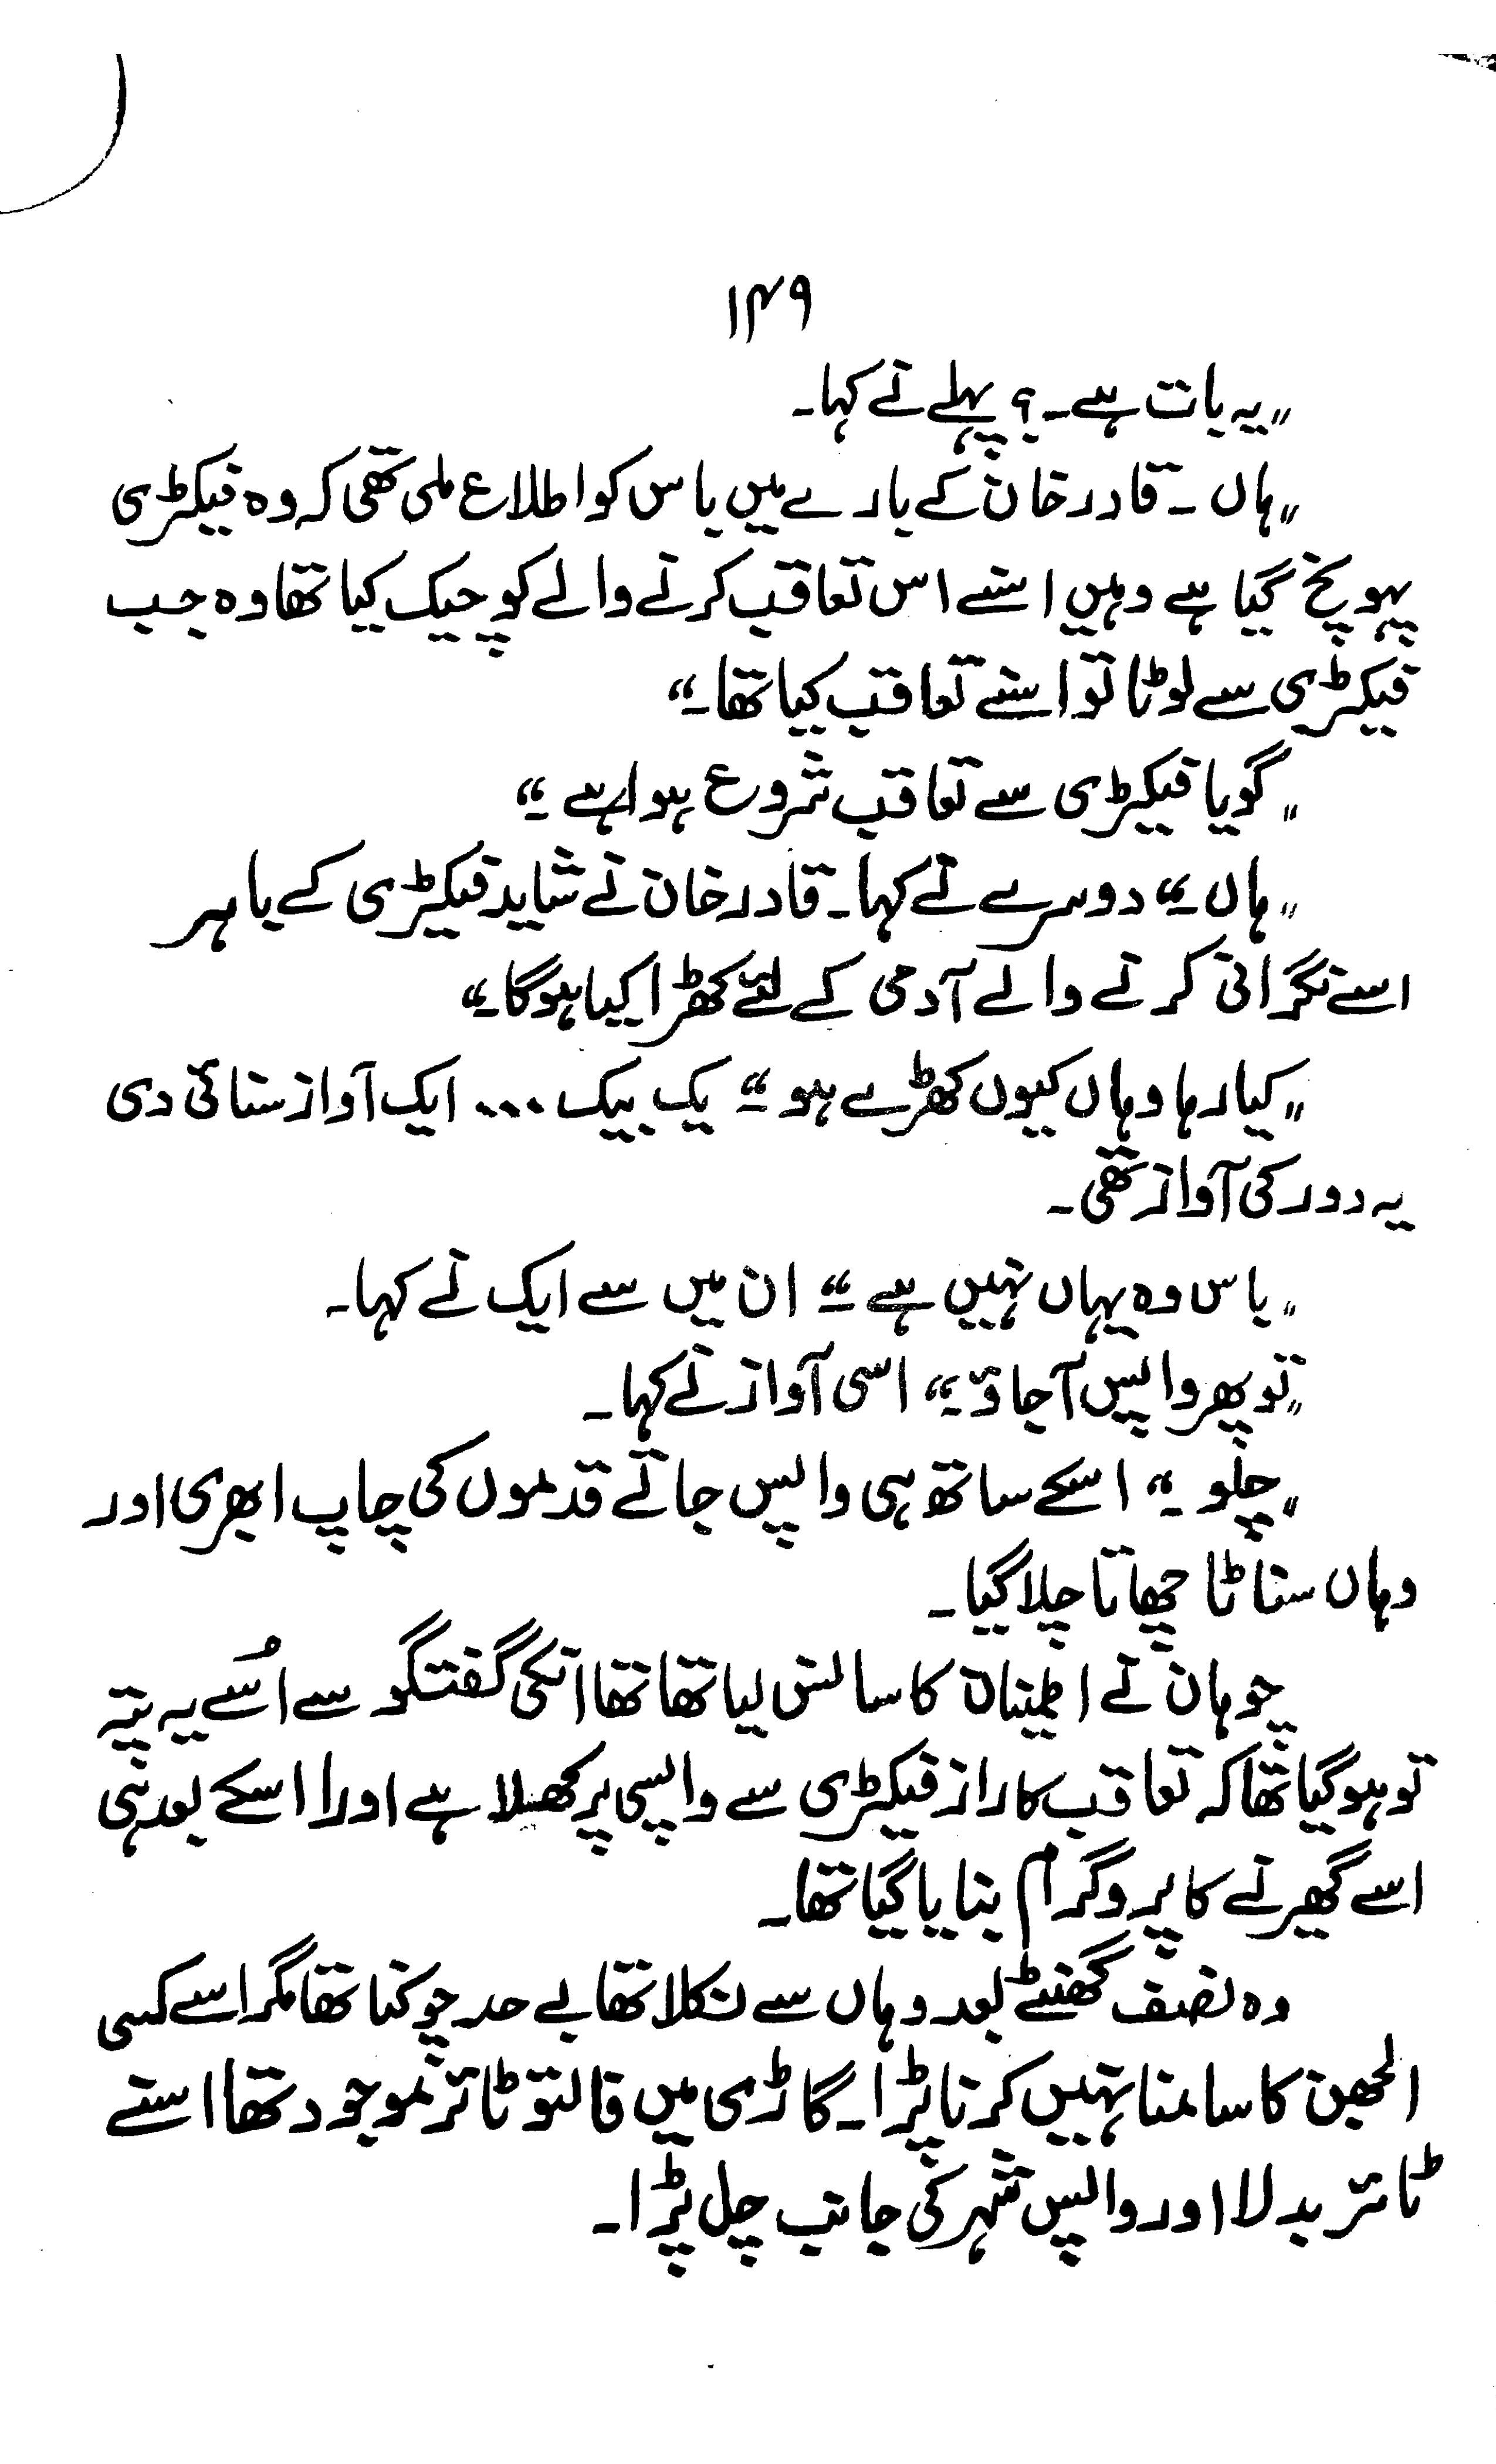 ۱۴۹
"یہ بات ہے۔؟ پہلے نے کہا۔
"ہاں ۔ قادر خان کے بارے میں باس کو اطلاع ملی تھی کہ وہ فیکٹری
پہونچ گیا ہے وہیں اسنے اس تعاقب کرنے والے کو چیک کیا تھا وہ جب
فیکٹری سے لوٹا تو اسنے تعاقب کیا تھا۔"
"گویا فیکٹری سے تعاقب شروع ہوا ہے۔"
"ہاں۔" دوسرے نے کہا۔ قادر خان نے شاید فیکٹری کے باہر
اسے نگرانی کرنے والے آدمی کے لئے کھڑا کیا ہوگا۔"
"کیا رہا وہاں کیوں کھڑے ہو۔" یک بیک ... ایک آواز سنائی دی
یہ دور کی آواز تھی۔
"باس وہ یہاں نہیں ہے۔" ان میں سے ایک نے کہا۔
"تو پھر واپس آجاؤ۔" اسی آواز نے کہا۔
"چلو۔" اسکے ساتھ ہی واپس جاتے قدموں کی چاپ ابھری اور
وہاں سناٹا چھاتا چلا گیا۔
چوہان نے اطمینان کا سانس لیا تھا تھا انکی گفتگو سے اُسے یہ پتہ
تو ہو گیا تھا کہ تعاقب کا راز فیکٹری سے واپسی پر کھلا ہے اور ا اسکے بعد ہی
اسے گھیرنے کا پروگرام بنایا گیا تھا۔
وہ نصف گھنٹے بعد وہاں سے نکلا تھا بے حد چوکنا تھا مگر اسے کسی
الجھن کا سامنا نہیں کرنا پڑا۔ گاڑی میں فالتو ٹائر موجود تھا اسنے
ٹائر بدلا اور واپس شہر کی جانب چل پڑا۔